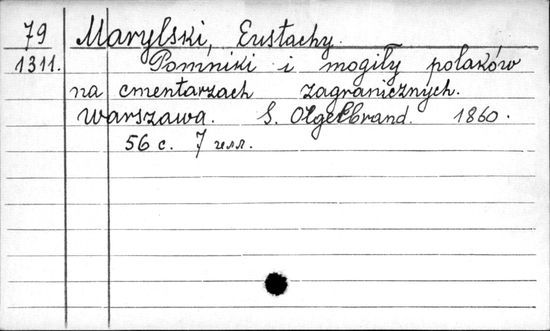 79 Marylski, Eustachy.
1311. Pomniki i mogiły polaków
na cmentarzach zagranicznych.
Warszawa. S. Olgelbrand. 1860.
56 с. 7 илл.